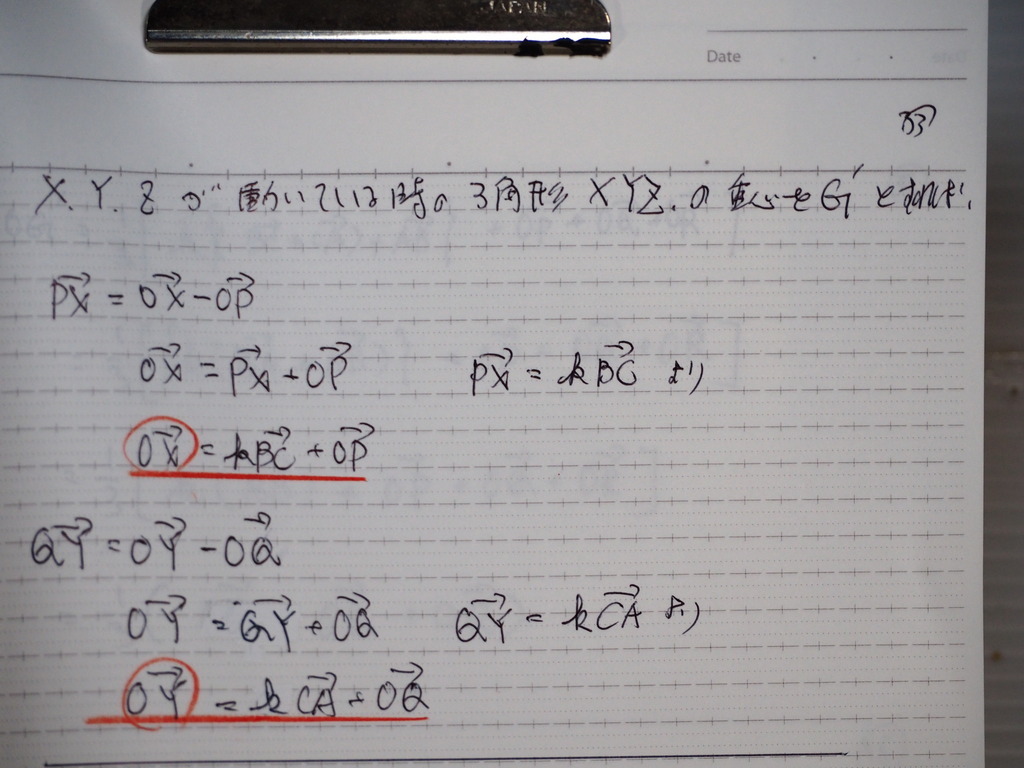 JAPAN
Date
X.Y.Zが動いている時の3角形XYZ.の重心をG'とすれば,
PX→ = OX→ - OP→
OX→ = PX→ + OP→ PX→ = kBC→ より
OX→ = kBC→ + OP→
QY→ = OY→ - OQ→
OY→ = QY→ + OQ→ QY→ = kCA→ より
OY→ = kCA→ + OQ→